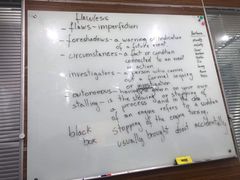 flawless
- flaws - imperfection
- foreshadows - a warning or indication
of a future event
- circumstances - a fact or condition
connected to an event
or action
investigators - a person who carries
a formal inquiry
or investigation
autonomous - having your own
stalling - is the slowing or stopping of
a process and in the case
of an engine refers to a sudden
stopping of the engine turning,
usually brought about accidentally
black
box